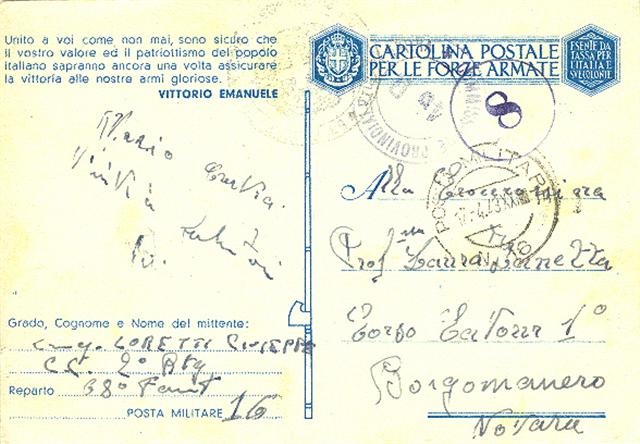 Unito a voi come non mai, sono sicuro che
il vostro valore ed il patriottismo del popolo
italiano sapranno ancora una volta assicurare
la vittoria alle nostre armi gloriose.
VITTORIO EMANUELE
CARTOLINA POSTALE
PER LE FORZE ARMATE
ESENTE DA
TASSA PER
L'ITALIA E
SUE COLONIE
8
POSTA MILITARE
Mario
Alla Crocerossina
Prof.ssa Laura
Corso Cavour 1°
Borgomanero
Novara
Grado, Cognome e Nome del mittente:
LORETTI GIUSEPPE
2° Btg
Reparto 38° Fant
POSTA MILITARE 16